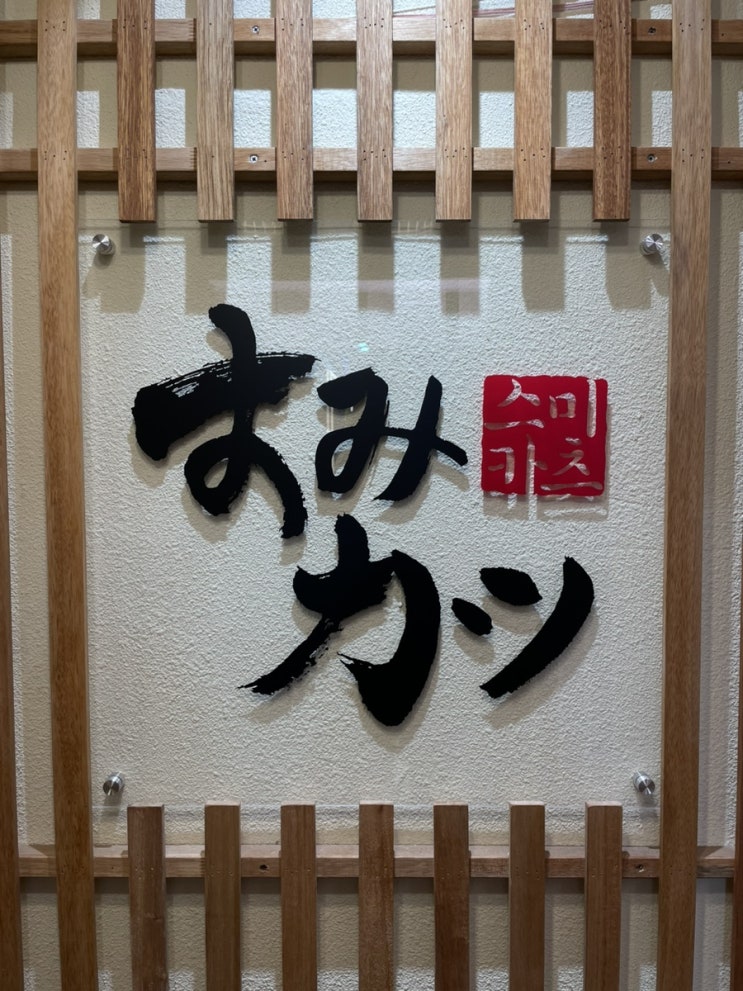 すみ
스미
카츠
カツ